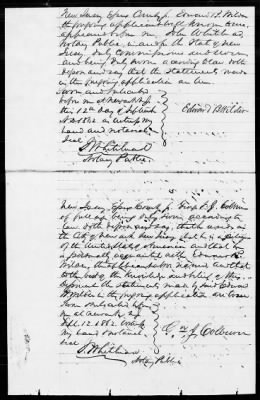 New Jersey Essex County ss Edward B. Wilder
the foregoing applicant being known
appeared before me John Whitehead
Notary Public in and for the State of New
Jersey duly commissioned and sworn
and being duly sworn according to law doth
depose and say that the statements made
in the foregoing application are true
Sworn and subscribed
before me at Newark N.J.
this 12th day of September
A.D. 1882 in witness my
hand and notarial
seal
Edward B Wilder
J Whitehead
Notary Public
New Jersey Essex County ss
of full age being duly sworn according to
law doth depose and say, that he resides in
the City of Newark New Jersey that he is a citizen
of the United States of America and that he
is personally acquainted with Edward B.
Wilder, the applicant above named and that
to the best of his knowledge and belief
the statements made by said Edward
B Wilder in the foregoing application are true
Sworn and subscribed before
me at Newark N.J.
Sept. 12. 1882. Witness
my hand and notarial
seal
J. Whitehead
Notary Public